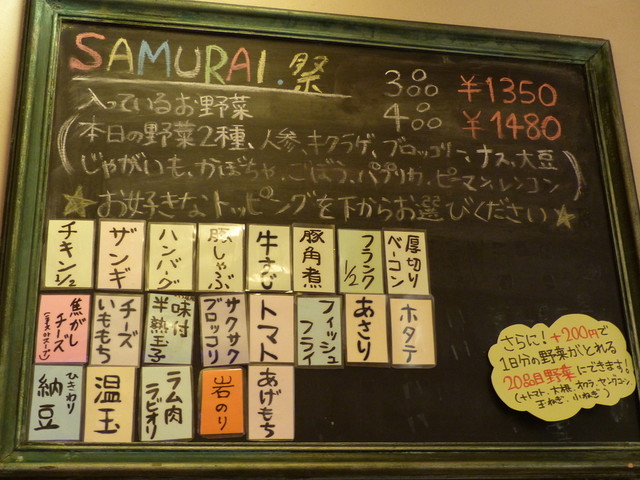 SAMURAI.祭
3ooo ¥1350
4ooo ¥1480
入っているお野菜
(本日の野菜2種、人参、キクラゲ、ブロッコリー、ナス、大豆
じゃがいも、かぼちゃ、ごぼう、パプリカ、ピーマン、レンコン)
★お好きなトッピングを下からお選びください★
チキン1/2
ザンギ
ハンバグ
豚しゃぶ
牛すじ
豚角煮
フランク1/2
厚切りベーコン
焦がしチーズ
チーズいももち
味付半熟玉子
サクサクブロッコリ
トマト
フィッシュフライ
あさり
ホタテ
ひきわり納豆
温玉
ラム肉ラビオリ
岩のり
あげもち
さらに!+200円で
1日分の野菜がとれる
20品目野菜にできます!
(+トマト、大根、オクラ、ヤングコーン
玉ねぎ、小ねぎ)